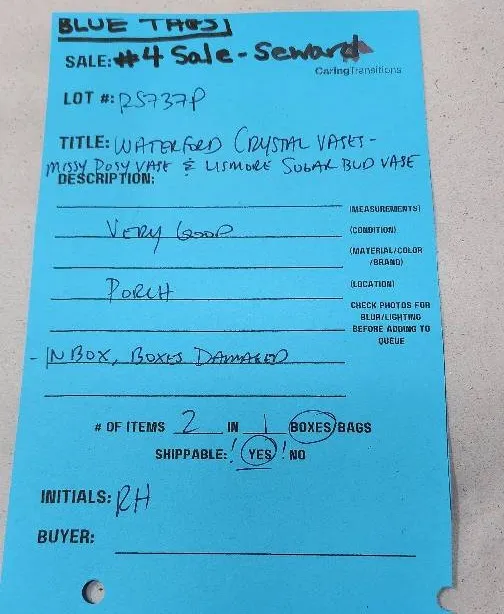 BLUE TAGS!
SALE: #4 Sale - Seward
CaringTransitions
LOT #: RS737P
TITLE: WATERFORD CRYSTAL VASES -
MISSY POSY VASE & LISMORE SUGAR BUD VASE
DESCRIPTION:
(MEASUREMENTS)
VERY GOOD (CONDITION)
(MATERIAL/COLOR
/BRAND)
PORCH (LOCATION)
CHECK PHOTOS FOR
BLUR/LIGHTING
BEFORE ADDING TO
QUEUE
- IN BOX, BOXES DAMAGED
# OF ITEMS 2 IN 1 BOXES/BAGS
SHIPPABLE: ! YES ! NO
INITIALS: RH
BUYER: